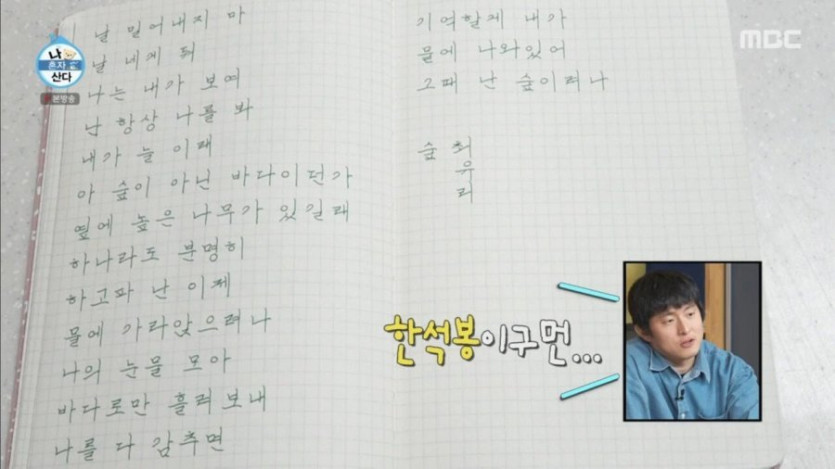 날 밀어내지 마
날 네게 둬
나는 내가 보여
난 항상 나를 봐
내가 늘 이래
아 숲이 아닌 바다이던가
옆에 높은 나무가 있길래
하나라도 분명히
하고파 난 이제
물에 가라앉으려나
나의 눈물 모아
바다로만 흘려보내
나를 다 감추면
기억할게 내가
뭍에 나와있어
그때 난 숲이려나
숲 최
유
리
나
혼자
산다
본방송
MBC
한석봉이구먼...